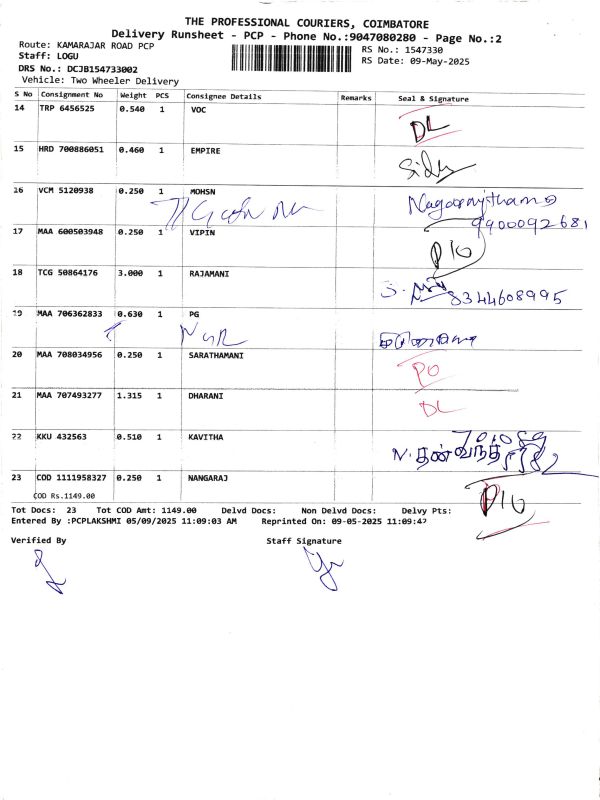 THE PROFESSIONAL COURIERS, COIMBATORE
Delivery Runsheet - PCP - Phone No.:9047080280 - Page No.:2
Route: KAMARAJAR ROAD PCP
RS No.: 1547330
Staff: LOGU
RS Date: 09-May-2025
DRS No.: DCJB154733002
Vehicle: Two Wheeler Delivery
S No Consignment No Weight PCS Consignee Details Remarks Seal & Signature
14 TRP 6456525 0.540 1 VOC
DL
15 HRD 700886051 0.460 1 EMPIRE
16 VCM 5120938 0.250 1 MOHSN
9900092681
17 MAA 600503948 0.250 1 VIPIN
P10
18 TCG 50864176 3.000 1 RAJAMANI
8344608995
19 MAA 706362833 0.630 1 PG
20 MAA 708034956 0.250 1 SARATHAMANI
PO
21 MAA 707493277 1.315 1 DHARANI
DL
22 KKU 432563 0.510 1 KAVITHA
23 COD 1111958327 0.250 1 NANGARAJ
P10
COD Rs.1149.00
Tot Docs: 23 Tot COD Amt: 1149.00 Delvd Docs: Non Delvd Docs: Delvy Pts:
Entered By :PCPLAKSHMI 05/09/2025 11:09:03 AM Reprinted On: 09-05-2025 11:09:47
Verified By Staff Signature